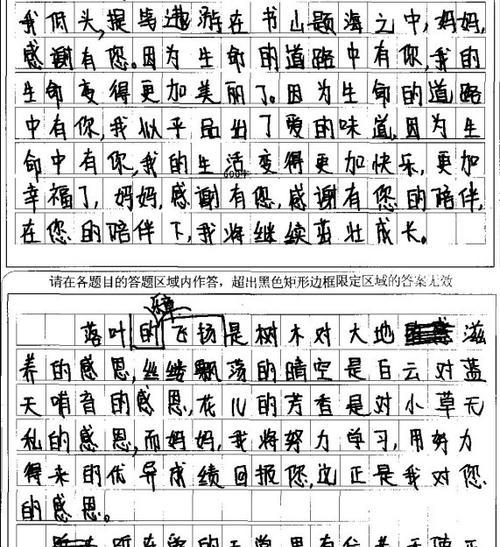 我低头,提笔遨游在书山题海之中,妈妈,
感谢有您。因为生命的道路中有你,我的
生命变得更加美丽了。因为生命的道路
中有你,我似乎品出了爱的味道。因为生
命中有你,我的生活变得更加快乐,更加
幸福了,妈妈,感谢有您,感谢有您的陪伴,
在您的陪伴下,我将继续茁壮成长。
请在各题目的答题区域内作答,超出黑色矩形边框限定区域的答案无效
落叶的飞扬是树木对大地滋
养的感恩,丝缕飘荡的晴空是白云对蓝
天哨音的感恩,花儿的芳香是对小草无
私的感恩,而妈妈,我将努力学习,用努力
得来的优异成绩回报您,这正是我对您
的感恩。